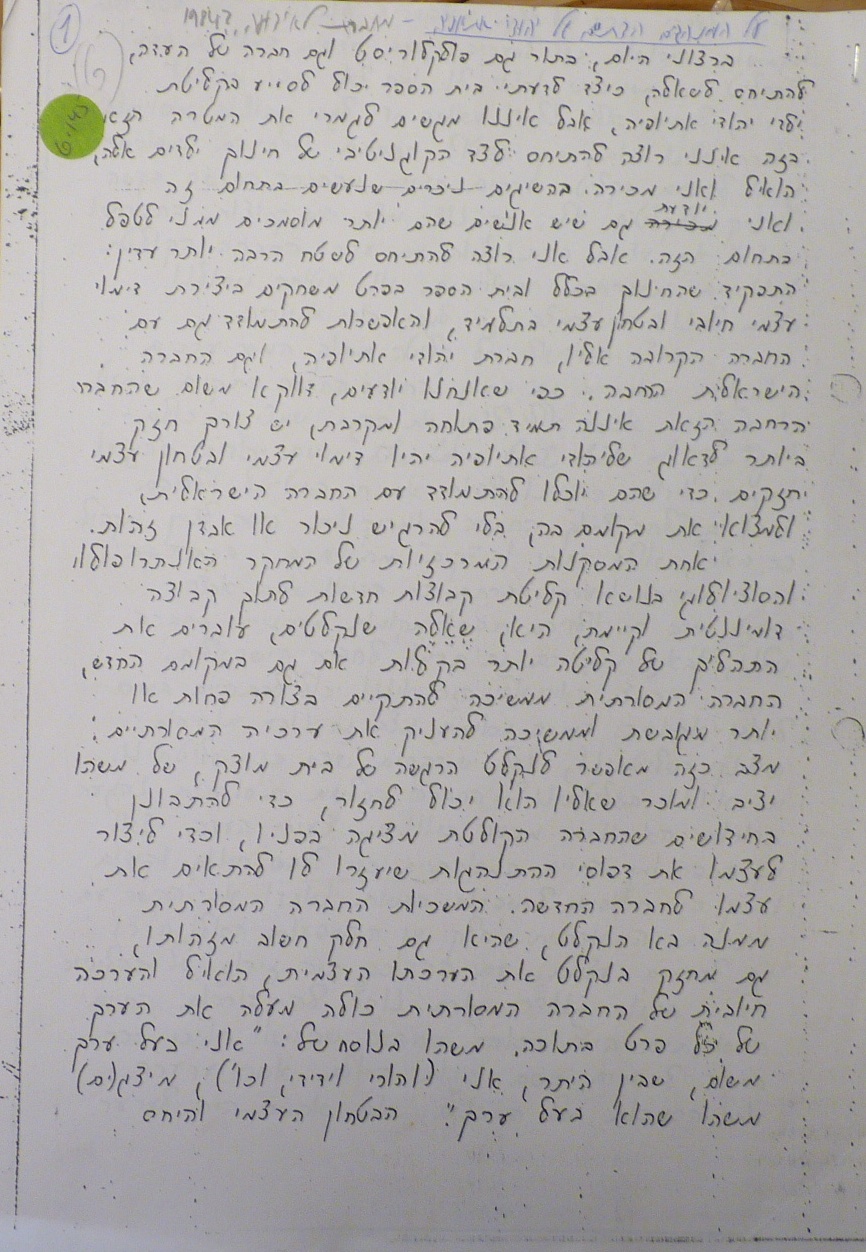 על המנהגים הדתיים של יהודי אתיופיה - מחברת
1
ברצוני היום, בתור גם פולקלוריסט וגם חברה של העדה,
להתיחס לשאלה, כיצד לדעתי בית הספר יכול לסייע בקליטת
ילדי יהודי אתיופיה, אבל איננו מגשים לגמרי את המטרה הזאת
בזה אינני רוצה להתיחס לצד הקוגניטיבי של חינוך ילדים אלה,
הואיל ואני מכירה בהשיגים ניכרים שנעשים בתחום זה
יודעת
ואני מכירה גם שיש אנשים שהם יותר מוסמכים ממני לטפל
בתחום הזה. אבל אני רוצה להתיחס לשטח הרבה יותר עדין:
התפקיד שהחינוך בכלל ובית הספר בפרט משחקים ביצירת דימוי
עצמי חיובי ובטחון עצמי בתלמיד, והאפשרות להתמודד גם עם
החברה הקרובה אליו, חברת יהודי אתיופיה, וגם החברה
הישראלית הרחבה. כפי שאנחנו יודעים, דווקא משום שהחברה
הרחבה הזאת איננה תמיד פתוחה ומקרבת, יש צורך חזק
ביותר לדאוג שליהודי אתיופיה יהיו דימוי עצמי ובטחון עצמי
חזקים, כדי שהם יוכלו להתמודד עם החברה הישראלית,
ולמצוא את מקומם בה, בלי להרגיש ניכור או אבדן זהות.
אחת המסקנות המרכזיות של המחקר האנתרופולוגי
והסוציולוגי בנושא קליטת קבוצות חדשות לתוך קבוצה
דומיננטית וקיימת, היא, שאלה שנקלטים, עוברים את
התהליכים של קליטה יותר בקלות אם גם במקומם החדש,
החברה המסורתית ממשיכה להתקיים בצורה פחות או
יותר מגובשת וממשיכה להעניק את ערכיה המסורתיים;
מצב כזה מאפשר לנקלט הרגשה של בית מוצק, של משהו
יציב ומוכר שאליו הוא יכול לחזור, כדי להתבונן
בחידושים שהחברה הקולטת מציגה בפניו, וכדי ליצור
לעצמו את דפוסי ההתנהגות שיעזרו לו להתאים את
עצמו לחברה החדשה. המשכיות החברה המסורתית
ממנה בא הנקלט, שהיא גם חלק חשוב מזהותו,
גם מחזק בנקלט את הערכתו העצמית, הואיל והערכה
חיובית של החברה המסורתית כולה מעלה את הערך
של כל פרט בתוכה. משהו בנוסח של: "אני בעל ערך
משום, שבין היתר, אני (והורי וידידי, וכו'), מיצג(ים)
משהו שהוא בעל ערך". הבטחון העצמי והיחס